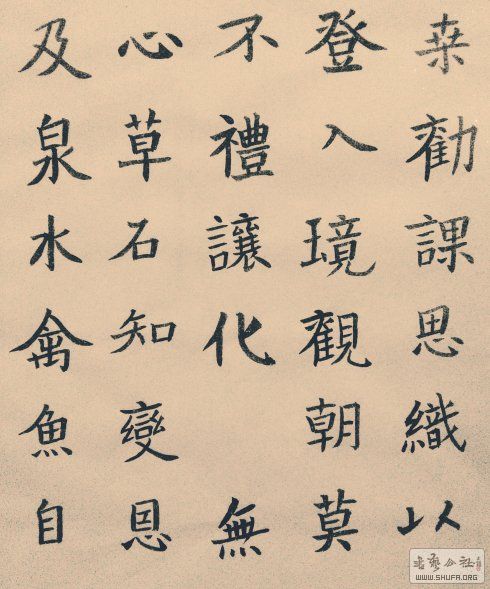 桒勸課思織以
登入境觀朝莫
不禮讓化 無
心草石知變恩
及泉水禽魚自
书艺公社
WWW.SHUFA.ORG